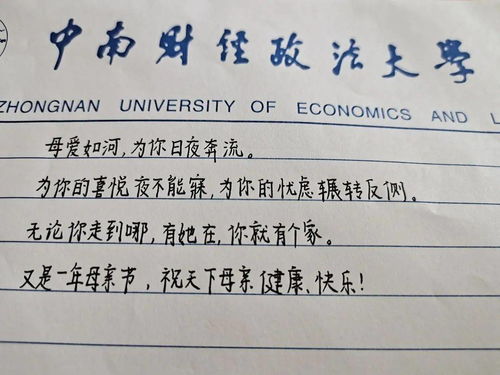 中南财经政法大学
ZHONGNAN UNIVERSITY OF ECONOMICS AND L
母爱如河,为你日夜奔流。
为你的喜悦夜不能寐,为你的忧虑辗转反侧。
无论你走到哪,有她在,你就有个家。
又是一年母亲节,祝天下母亲健康、快乐!